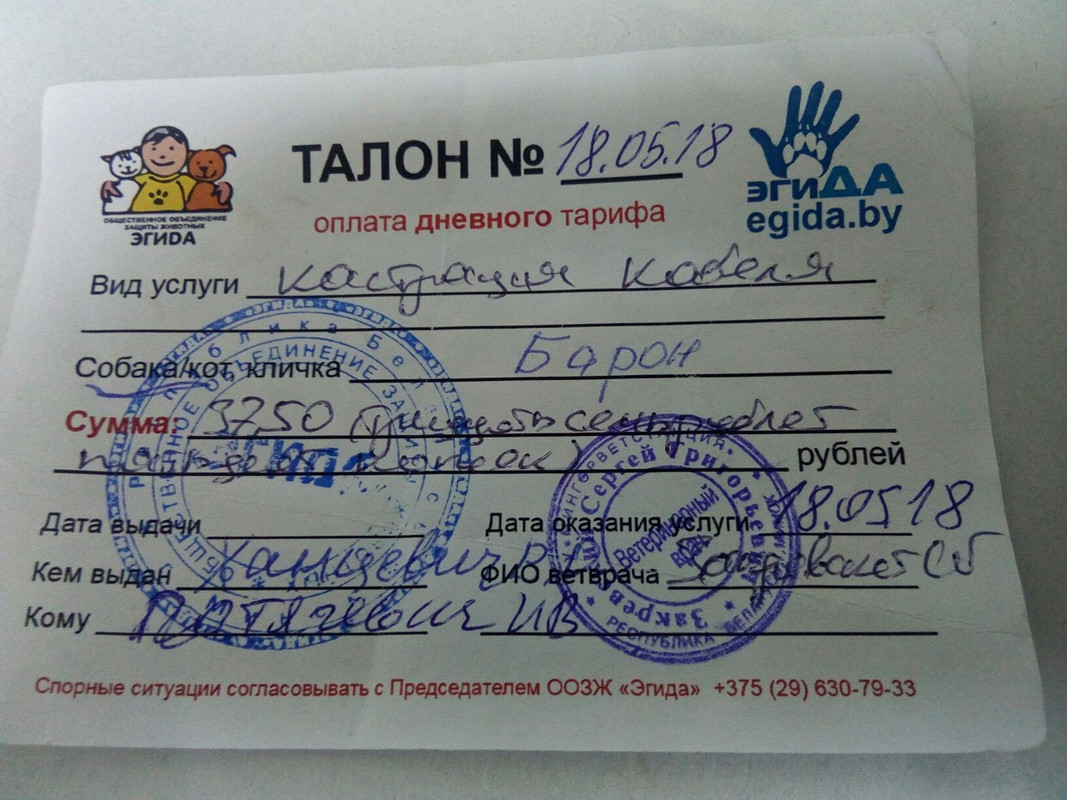 ОБЩЕСТВЕННОЕ ОБЪЕДИНЕНИЕ
ЗАЩИТЫ ЖИВОТНЫХ
ЭГИDА
ТАЛОН № 18.05.18
оплата дневного тарифа
эгиДА
egida.by
Вид услуги кастрация кобеля
Собака/кот, кличка Барон
Сумма: 37,50 (тридцать семь рублей
пятьдесят копеек) рублей
Дата выдачи
Дата оказания услуги 18.05.18
Кем выдан
ФИО ветврача
Кому
Ветеринарный врач
РЕСПУБЛИКА БЕЛАРУСЬ
Спорные ситуации согласовывать с Председателем ООЗЖ «Эгида» +375 (29) 630-79-33